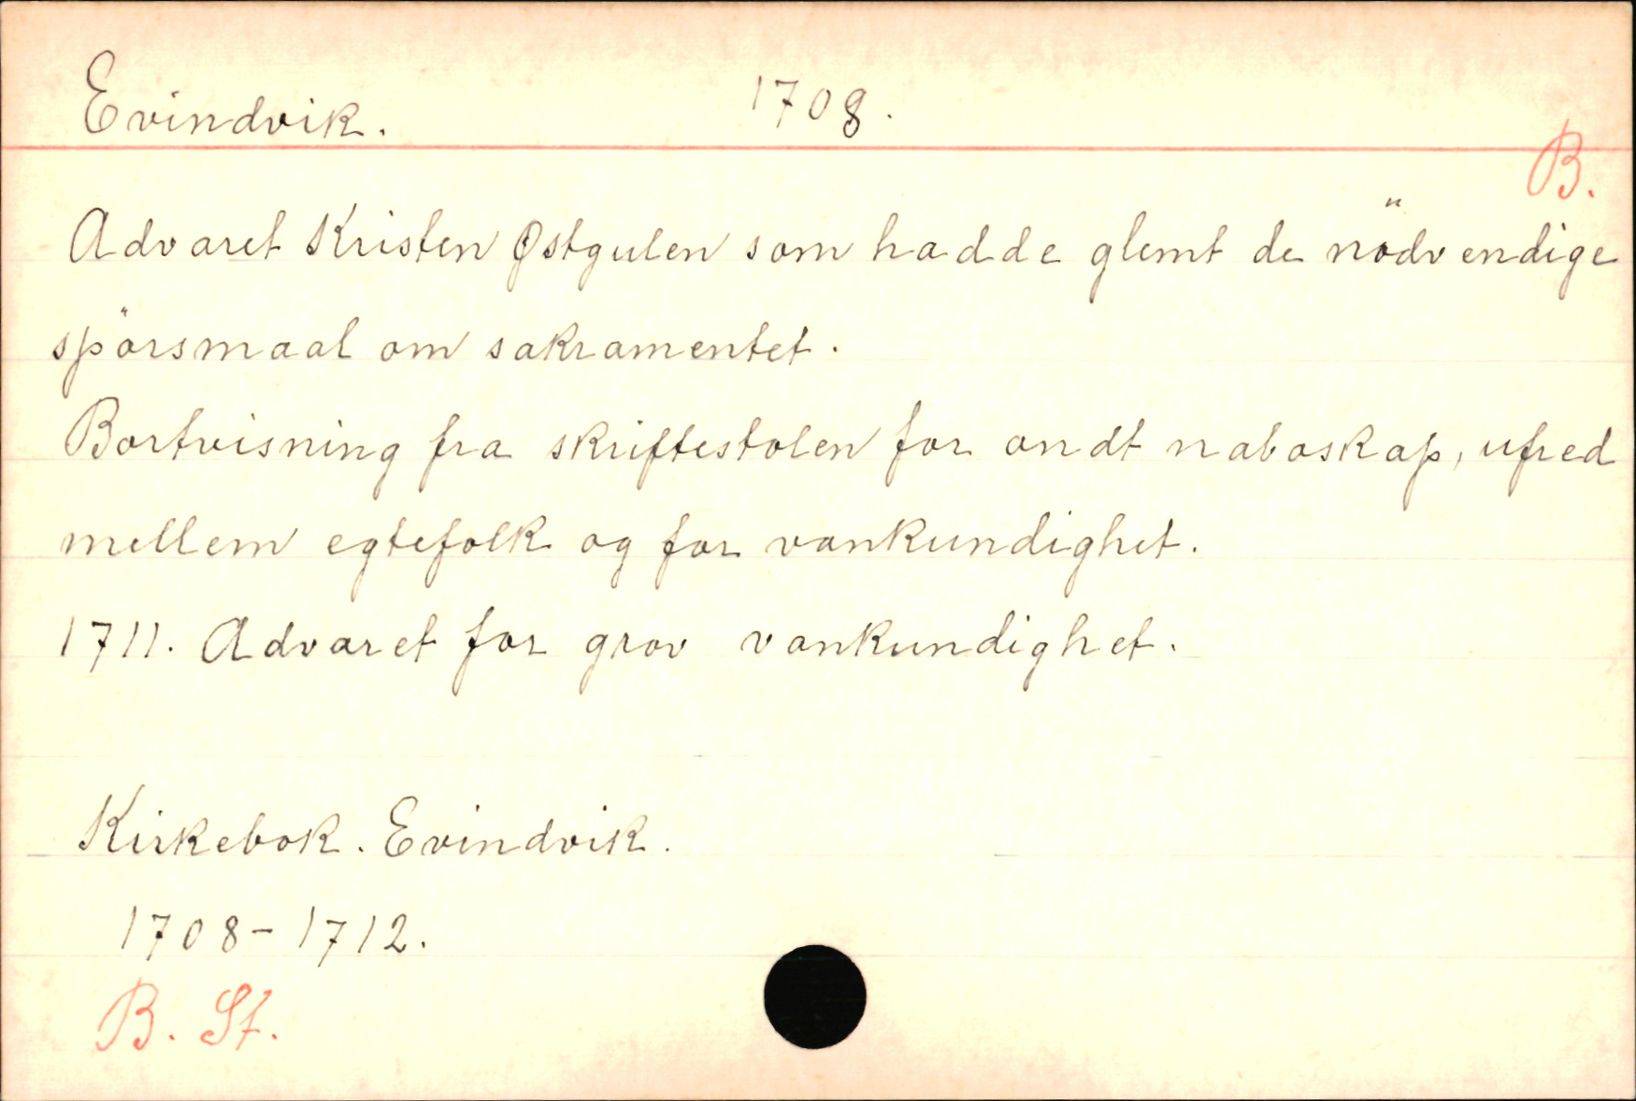 Evindvik. 1708.
B.
Advaret Kristen Østgulen som hadde glemt de nödvendige
spörsmaal om sakramentet.
Bortvisning fra skriftestolen for ondt naboskap, ufred
mellem egtefolk og for vankundighet.
1711. Advaret for grov vankundighet.
Kirkebok. Evindvik.
1708-1712.
B. St.